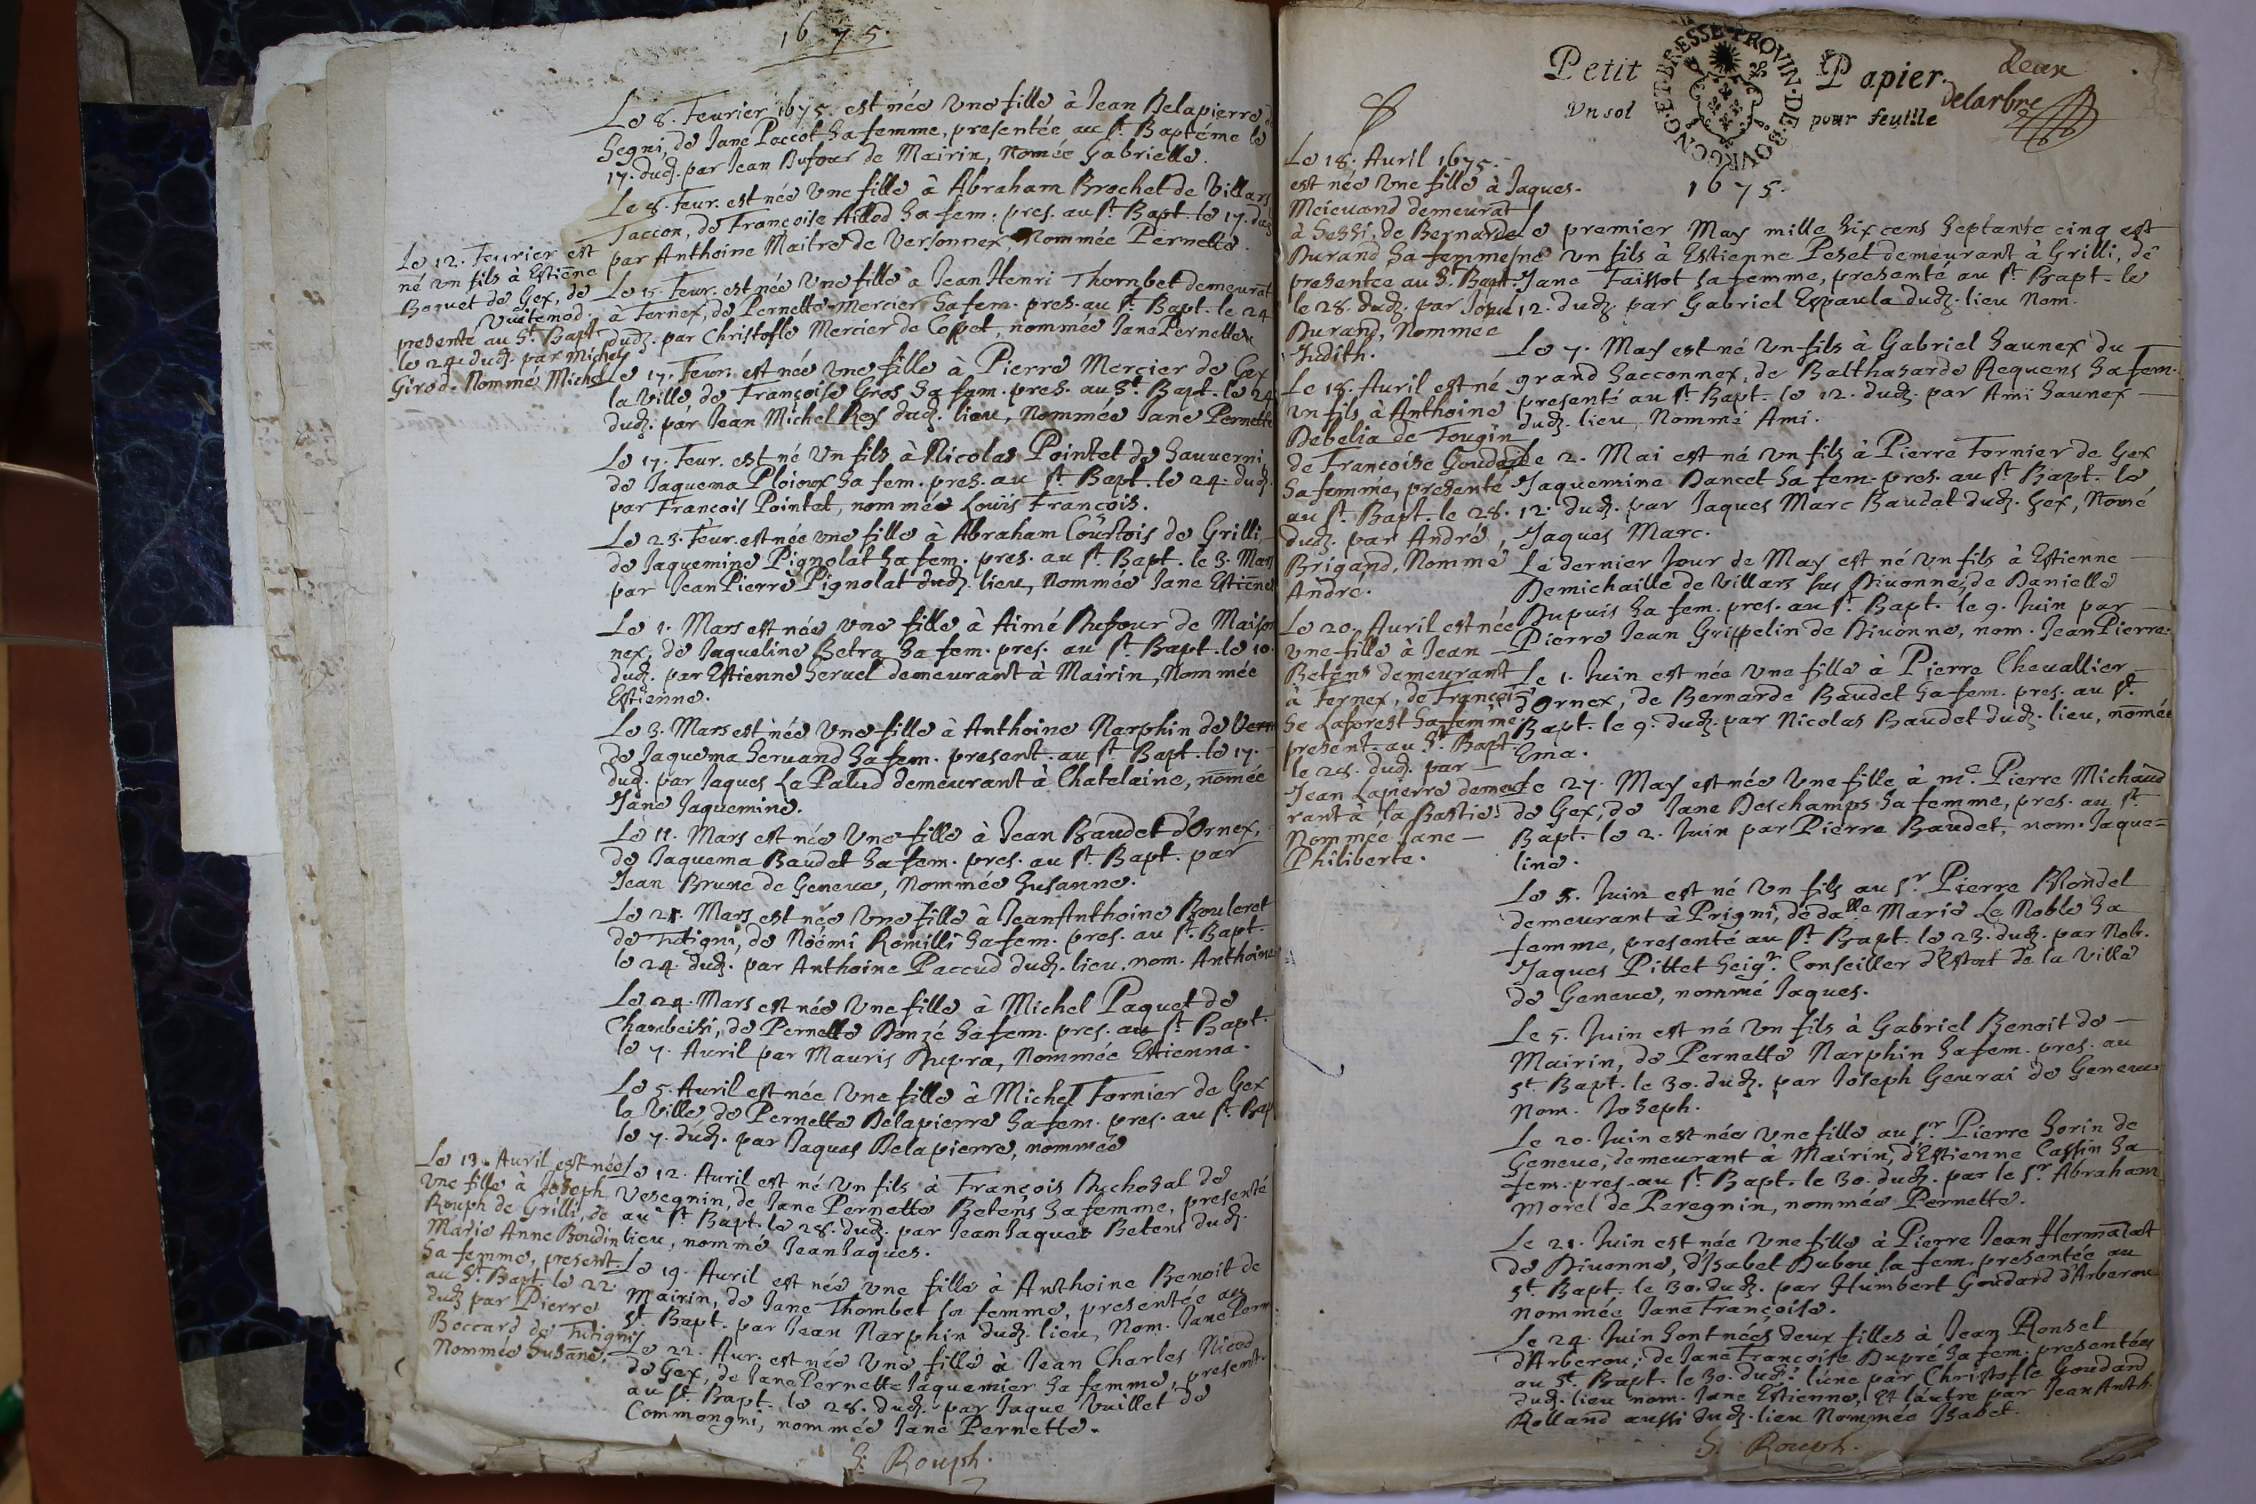 1675.
Le 8. Feurier 1675. est née une fille à Jean Delapierre de
Segni, de Jane Paccot sa femme, presentée au St. Baptéme le
17. dudz. par Jean Dufour de Mairin, Nomée Gabrielle.
Le 8. Feur. est née une fille à Abraham Brochet de Villars
Taccon, de Françoise Aillod sa fem. pres. au St. Bapt. le 17. dudz
par Anthoine Maitre de Versonnex, Nommée Pernette.
Le 12. Feurier est
né un fils à Estiēne
Boquet de Gex, de
Vuitemod
presenté au St. Bapt.
le 24. dudz. par Michel
Girod. Nommé Michel
Le 15. Feur. est née Une fille à Jean Henri Thombet demeurāt
à Fernex, de Pernette Mercier sa fem. pres. au St. Bapt. le 24
dudz. par Christofle Mercier de Coppet, nommée Jane Pernette
Le 17. Feur. est née une fille à Pierre Mercier de Gex
la Ville de Françoise Gros sa fem. pres. au St. Bapt. le 24
dudz. par Jean Michel Rey dudz. lieu, Nommée Jane Pernette
Le 17. Feur. est né Un fils à Nicolas Pointet de Sauuerni,
de Jaquema Ploioux sa fem. pres. au St. Bapt. le 24. dudz.
par François Pointet, nommée Louïs François.
Le 23. Feur. est née une fille à Abraham Courtois de Grilli,
de Jaquemine Pignolat sa fem. pres. au St. Bapt. le 3. Mars
par Jean Pierre Pignolat dudz. lieu, Nommée Jane Estiēne
Le 1. Mars est née une fille à Aimé Dufour de Maison
nex, de Jaqueline Betra sa fem. pres. au St. Bapt. le 10.
dudz. par Estienne Seruel demeurant à Mairin, Nommée
Estienne.
Le 3. Mars est née Une fille à Anthoine Narphin de Vern
de Jaquema Seruand sa fem. present. au St. Bapt. le 17.
dudz. par Jaques La Palud demeurant à Chatelaine, nomée
Jane Jaquemine.
Le 11. Mars est née Une fille à Jean Baudet d'Ornex,
de Jaquema Baudet sa fem. pres. au St. Bapt. par
Jean Brune de Geneue, Nommée Susanne.
Le 21. Mars est née Une fille à Jean Anthoine Bouleret
de Tutigni, de Nöémi Romilli sa fem. pres. au St. Bapt.
le 24. dudz. par Anthoine Paccud dudz. lieu. nom. Anthoine
Le 24. Mars est née Une fille à Michel Paquet de
Chambeisi, de Pernette Donzé sa fem. pres. au St. Bapt.
le 7. Auril par Mauris Dupra, Nommée Estienna.
Le 5. Auril est née Une fille à Michel Fornier de Gex
la Ville de Pernette Delapierre sa fem. pres. au St. Bap
le 7. dudz. par Jaques Delapierre, nommée
Le 13. Auril est née
Une fille à Joseph
Rouph de Grilli, de
Marie Anne Boudin
sa femme, present.
au St. Bapt. le 22.
dudz par Pierre
Boccard de Tutigni
Nommée Susāne.
Le 12. Auril est né Un fils à François Duchosal de
Vesegnin, de Jane Pernette Betens sa femme, presenté
au St. Bapt. le 28. dudz. par Jean Jaques Betens dudz.
lieu, nommé Jean Jaques.
Le 19. Auril est née une fille à Anthoine Benoit de
Mairin, de Jane Thombet sa femme, presentée au
St. Bapt. par Jean Narphin dudz. lieu, Nom. Jane Pern
Le 22. Aur. est née Une fille à Jean Charles Nicod
de Gex, de Jane Pernette Jaquemier sa femme, present.
au St. Bapt. le 28. dudz. par Jaque Vuillet de
Commongni, nommée Jane Pernette.
S. Rouph.
Petit Papier.
Un sol pour feuille
PROVIN. DE. BOVRGONG. ET. BRESSE
deux
Delarbre
1675.
Le 18. Auril 1675.
est née une fille à Jaques.
Meieuand demeurāt
à Sessi, de Bernarde
Durand sa femme
presentee au St. Bapt.
le 28. dudz. par
Durand, Nommee
Judith.
Le 18. Auril est né
un fils à Anthoine
Debelia de Tougin
de Francoise Goudard
sa femme, presenté
au St. Bapt. le 28.
dudz. par André
Brigand, Nommé
André.
Le 20. Auril est née
une fille à Jean
Betens demeurant
à Fernex, de Françoi
se Laforest sa femme.
present. au St. Bapt.
le 28. dudz. par
Jean Lapierre demeu
rant à la Bastie.
Nommee Jane
Philiberte.
Le premier May mille six cens septante cinq est
né un fils à Estienne Peset demeurant à Grilli, de
Jane Taissot sa femme, presenté au St. Bapt. le
12. dudz. par Gabriel Espaula dudz. lieu Nom.
Le 7. May est né un fils à Gabriel Saunex du
grand Sacconnex, de Balthasarde Requens sa fem.
presenté au St. Bapt. le 12. dudz. par Ami Saunex
dudz. lieu, Nommé Ami.
Le 2. Mai est né un fils à Pierre Fornier de Gex
Jaquemine Dancet sa fem. pres. au St. Bapt. le
12. dudz. par Jaques Marc Baudat dudz. Gex, Nomé
Jaques Marc.
Le dernier Jour de May est né un fils à Estienne
Demichaille de Villars sus Diuonne, de Danielle
Dupuis sa fem. pres. au St. Bapt. le 9. Juin par
Pierre Jean Grippelin de Diuonne, nom. Jean Pierre.
Le 1. Juin est née Une fille à Pierre Cheuallier
d'Ornex, de Bernarde Baudet sa fem. pres. au St.
Bapt. le 9. dudz. par Nicolas Baudet dudz. lieu, nomée
Ema.
Le 27. May est née Une fille à me. Pierre Michaud
de Gex, de Jane Deschamps sa femme, pres. au St
Bapt. le 2. Juin par Pierre Baudet, nom. Jaque=
line.
Le 5. Juin est né Un fils au Sr. Pierre Blondel
demeurant à Prigni, de dalle Marie Le Noble sa
femme, presenté au St. Bapt. le 23. dudz. par Nob.
Jaques Pittet Seigr. Conseiller d'Estat de la Ville
de Geneue, nommé Jaques.
Le 5. Juin est né un fils à Gabriel Benoit de
Mairin, de Pernette Narphin sa fem. pres. au
St. Bapt. le 30. dudz. par Joseph Geurai de Geneue
Nom. Joseph.
Le 20. Juin est née Une fille au Sr Pierre Sorin de
Geneue, demeurant à Mairin, d'Estienne Cassin sa
fem. pres. au St. Bapt. le 30. dudz. par le Sr. Abraham
Morel de Peregnin, nommée Pernette.
Le 21. Juin est née Une fille à Pierre Jean Hermalat
de Diuonne, d'Isabet Dubou sa fem. presentée au
St. Bapt. le 30. dudz. par Humbert Goudard d'Arberou
Nommée Jane Françoise.
Le 24. Juin sont nées deux filles à Jean Ronset
d'Arberou, de Jane Françoise Dupré sa fem. presentées
au St. Bapt. le 30. dudz. l'une par Christofle Goudard
dudz. lieu nom. Jane Estienne, & l'autre par Jean Anth.
Rolland aussi dudz. lieu Nommée Isabet.
S. Rouph.